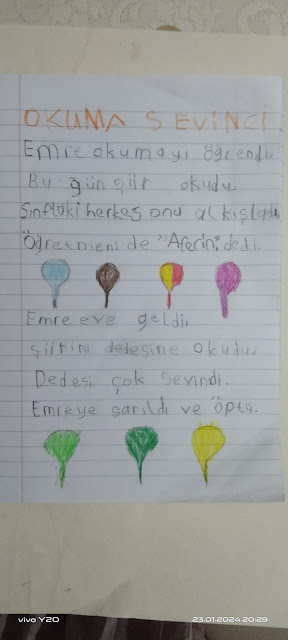 OKUMA SEVİNCİ
Emre okumayı öğrendi.
Bu gün şiir okudu.
Sınıftaki herkes onu alkışladı,
Öğretmeni de "Aferin," dedi.
Emre eve geldi,
şiirini dedesine okudu.
Dedesi çok sevindi.
Emreye sarıldı ve öptü.
vivo Y20
23.01.2024 20:29